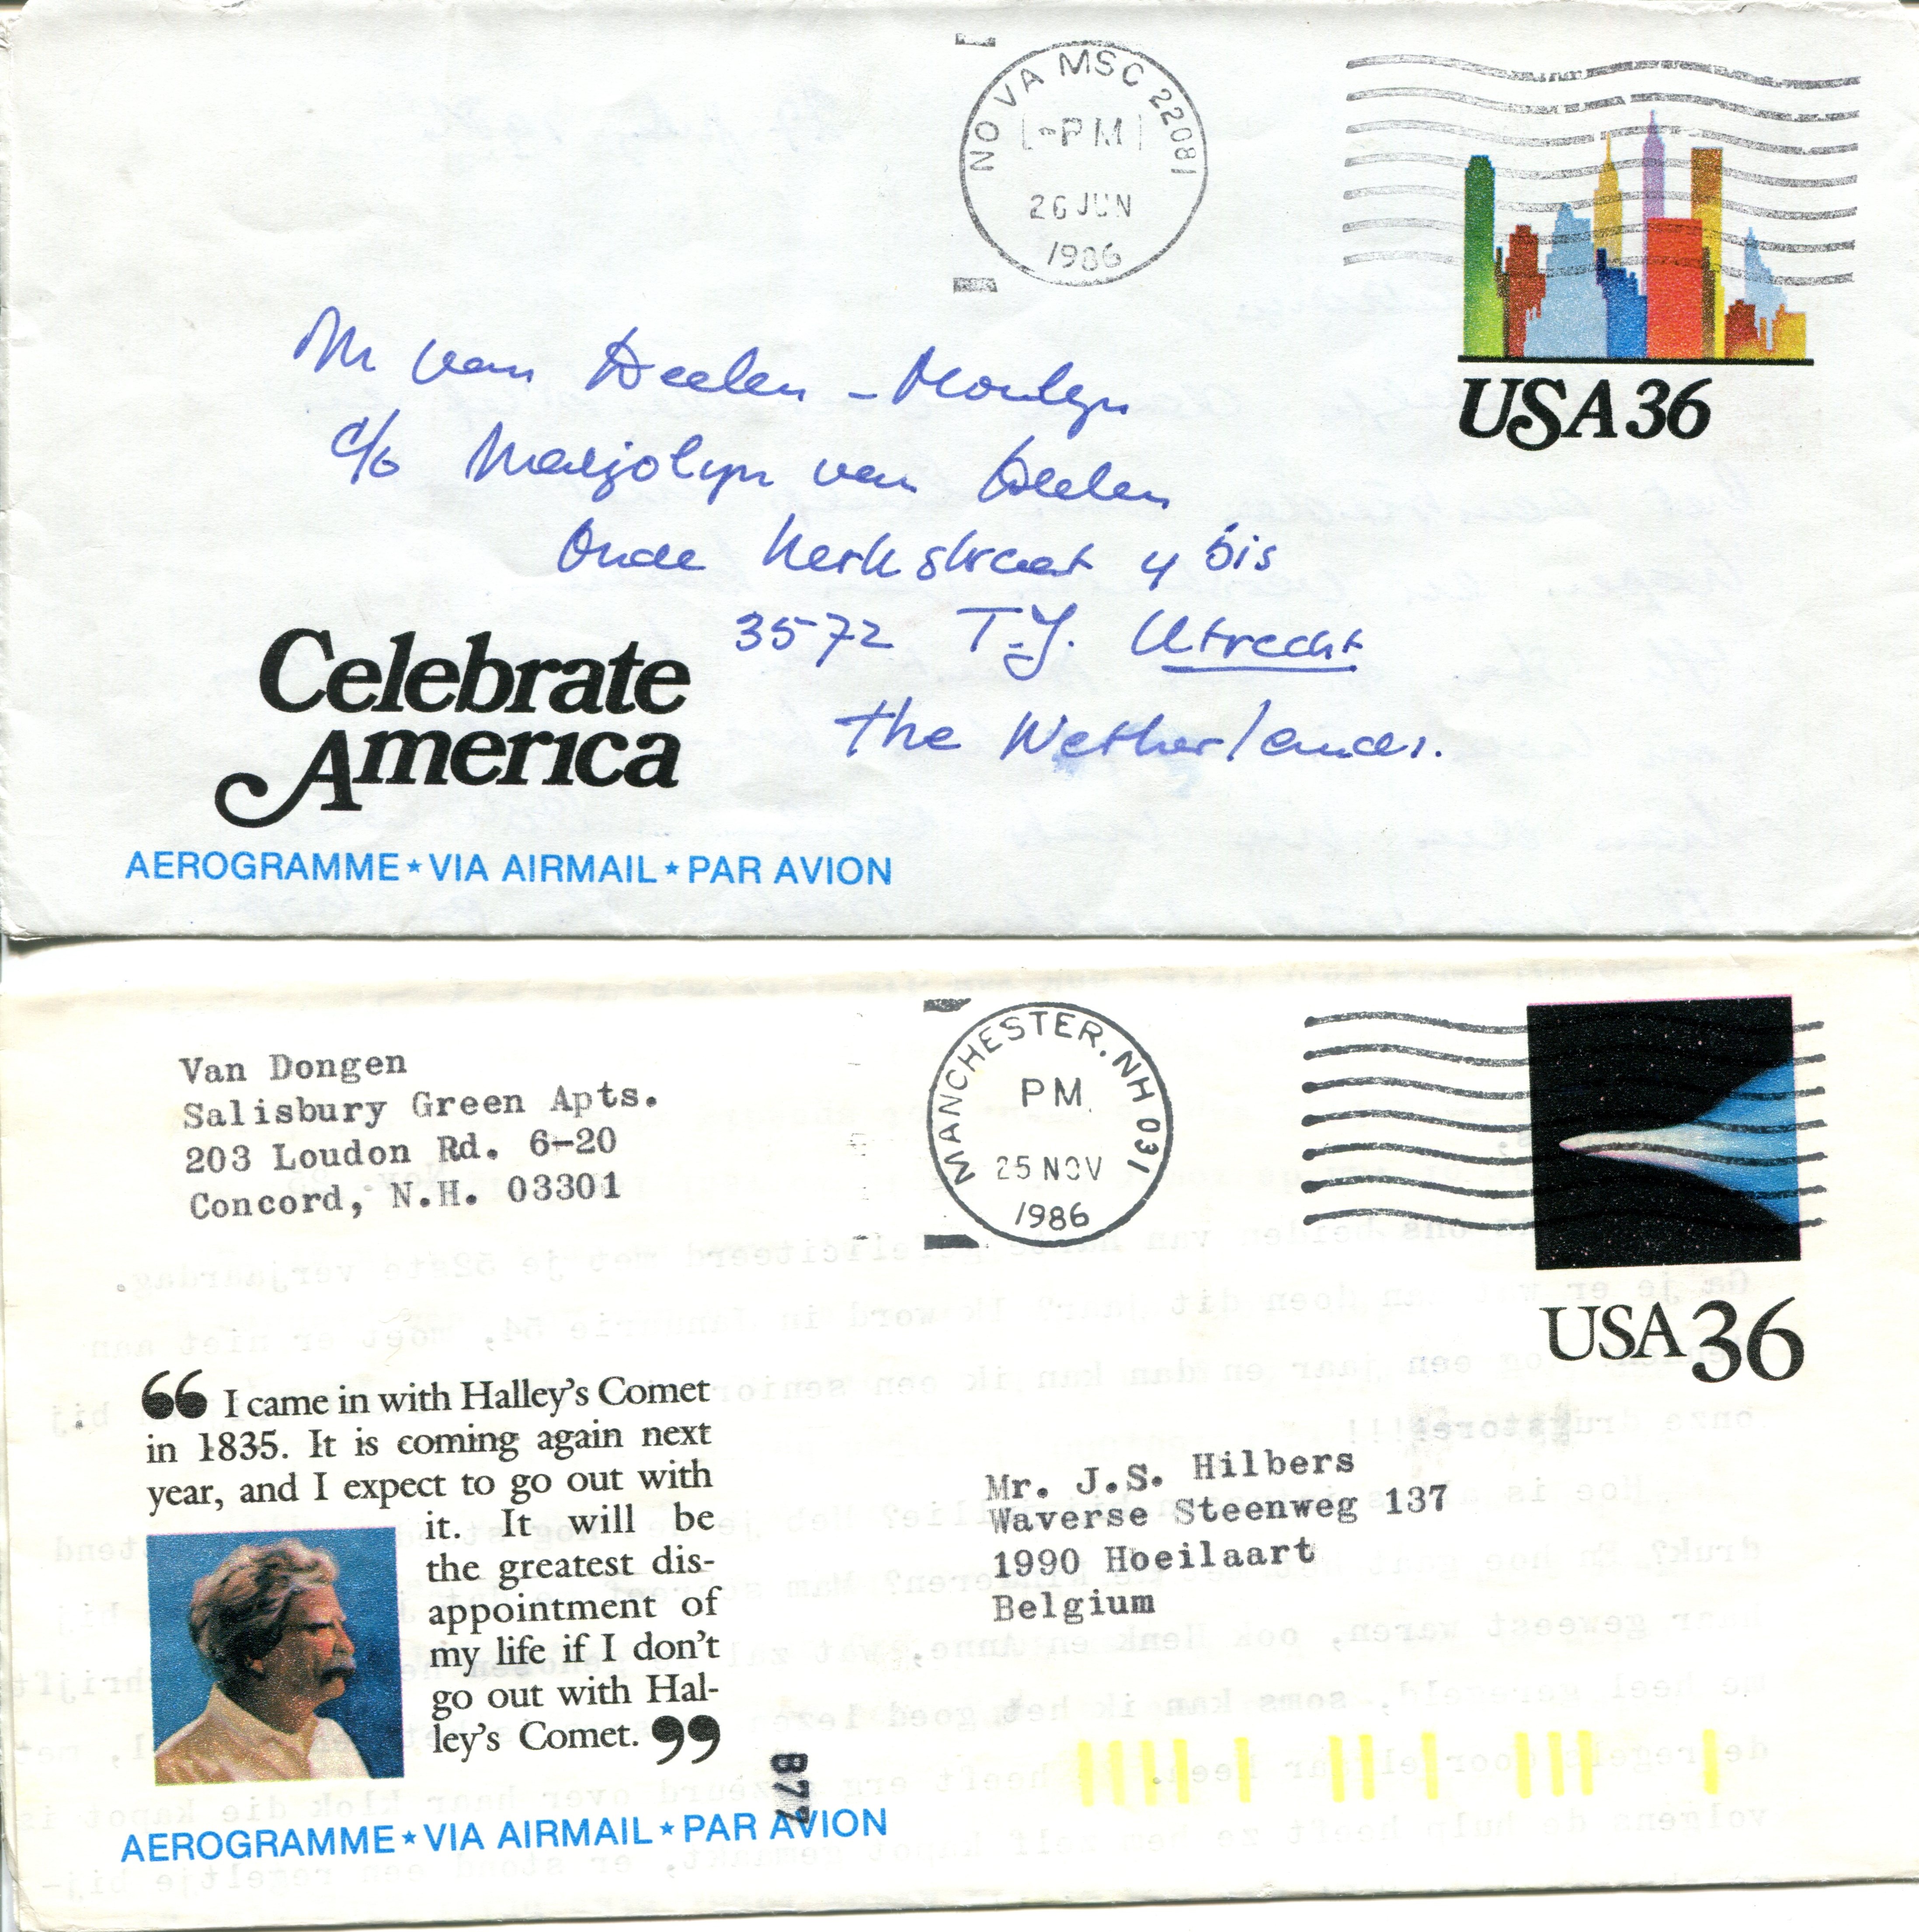 NO VA MSC 22081
PM
26 JUN
1986
USA 36
M van Deelen - Monlyn
c/o Marjolyn van Deelen
Oude Kerkstraat 4 bis
3572 T.J. Utrecht
The Netherlands.
Celebrate
America
AEROGRAMME★VIA AIRMAIL★PAR AVION
Van Dongen
Salisbury Green Apts.
203 Loudon Rd. 6-20
Concord, N.H. 03301
MANCHESTER, NH 031
PM
25 NOV
1986
USA 36
“ I came in with Halley’s Comet
in 1835. It is coming again next
year, and I expect to go out with
it. It will be
the greatest dis-
appointment of
my life if I don’t
go out with Hal-
ley’s Comet. ”
Mr. J.S. Hilbers
Waverse Steenweg 137
1990 Hoeilaart
Belgium
B77
AEROGRAMME★VIA AIRMAIL★PAR AVION